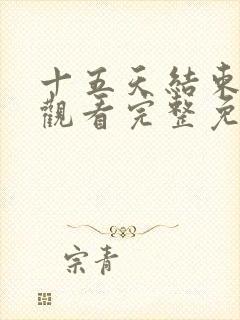 十五天結束
觀看完整免
宗青